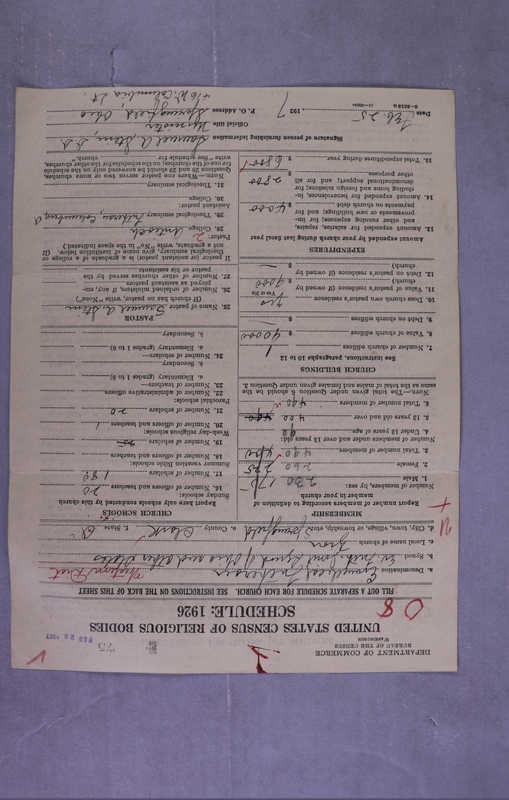 DEPARTMENT OF COMMERCE
BUREAU OF THE CENSUS
WASHINGTON
73
FEB 28 1927
UNITED STATES CENSUS OF RELIGIOUS BODIES
SCHEDULE: 1926
FILL OUT A SEPARATE SCHEDULE FOR EACH CHURCH. SEE INSTRUCTIONS ON THE BACK OF THIS SHEET
a. Denomination Evangelical Lutheran
b. Synod Ev. Luth. Joint Synod of Ohio and other States
c. Local name of church Zion
d. City, town, village, or township, etc. Springfield e. County Clark f. State O.
MEMBERSHIP
Report number of members according to definition of member in your church
Number of members, by sex:
1. Male 230
2. Female 260
3. Total number of members 490
Number of members under and over 13 years old:
4. Under 13 years of age 90
5. 13 years old and over 400
6. Total number of members 490
NOTE.—The total given under Question 6 should be the same as the total of males and females given under Question 3.
CHURCH BUILDINGS
See instructions, paragraphs 10 to 12
7. Number of church edifices 1
8. Value of church edifices $ 40000
9. Debt on church edifices $
10. Does church own pastor's residence yes
Yes or No
11. Value of pastor's residence (if owned by church) $ 9000
12. Debt on pastor's residence (if owned by church) $ —
EXPENDITURES
Amount expended by your church during last fiscal year
13. Amount expended for salaries, repairs, and other running expenses; for improvements or new building; and for payments on church debt $ 4000
14. Amount expended for benevolences, including home and foreign missions; for denominational support; and for all other purposes $ 2800
15. Total expenditures during year $ 6800
CHURCH SCHOOLS
Report here only schools conducted by this church
Sunday school:
16. Number of officers and teachers 20
17. Number of scholars 188
Summer vacation Bible school:
18. Number of officers and teachers
19. Number of scholars
Week-day religious schools:
20. Number of officers and teachers 1
21. Number of scholars 20
Parochial schools:
22. Number of administrative officers
23. Number of teachers—
a. Elementary (grades 1 to 8)
b. Secondary
24. Number of scholars—
a. Elementary (grades 1 to 8)
b. Secondary
PASTOR
25. Name of pastor Samuel A. Stein
(If church has no pastor, write "None")
26. Number of ordained ministers, if any, employed as assistant pastors
27. Number of other churches served by the pastor or his assistants
If pastor (or assistant pastor) is a graduate of a college or theological seminary, give name of institution below. (If not a graduate, write "No" in the space indicated.)
Pastor:
28. College
29. Theological seminary Lutheran, Columbus, O
Assistant pastor:
30. College
31. Theological seminary
NOTE.—When one pastor serves two or more churches, Questions 25 and 29 should be answered only on the schedule for one of the churches; on the schedules for the other churches, write "See schedule for church."
Signature of person furnishing information Samuel A. Stein, D D
Official title Minister
P. O. Address Springfield, Ohio
416 W. Columbia St.
Date Feb. 25, 1927